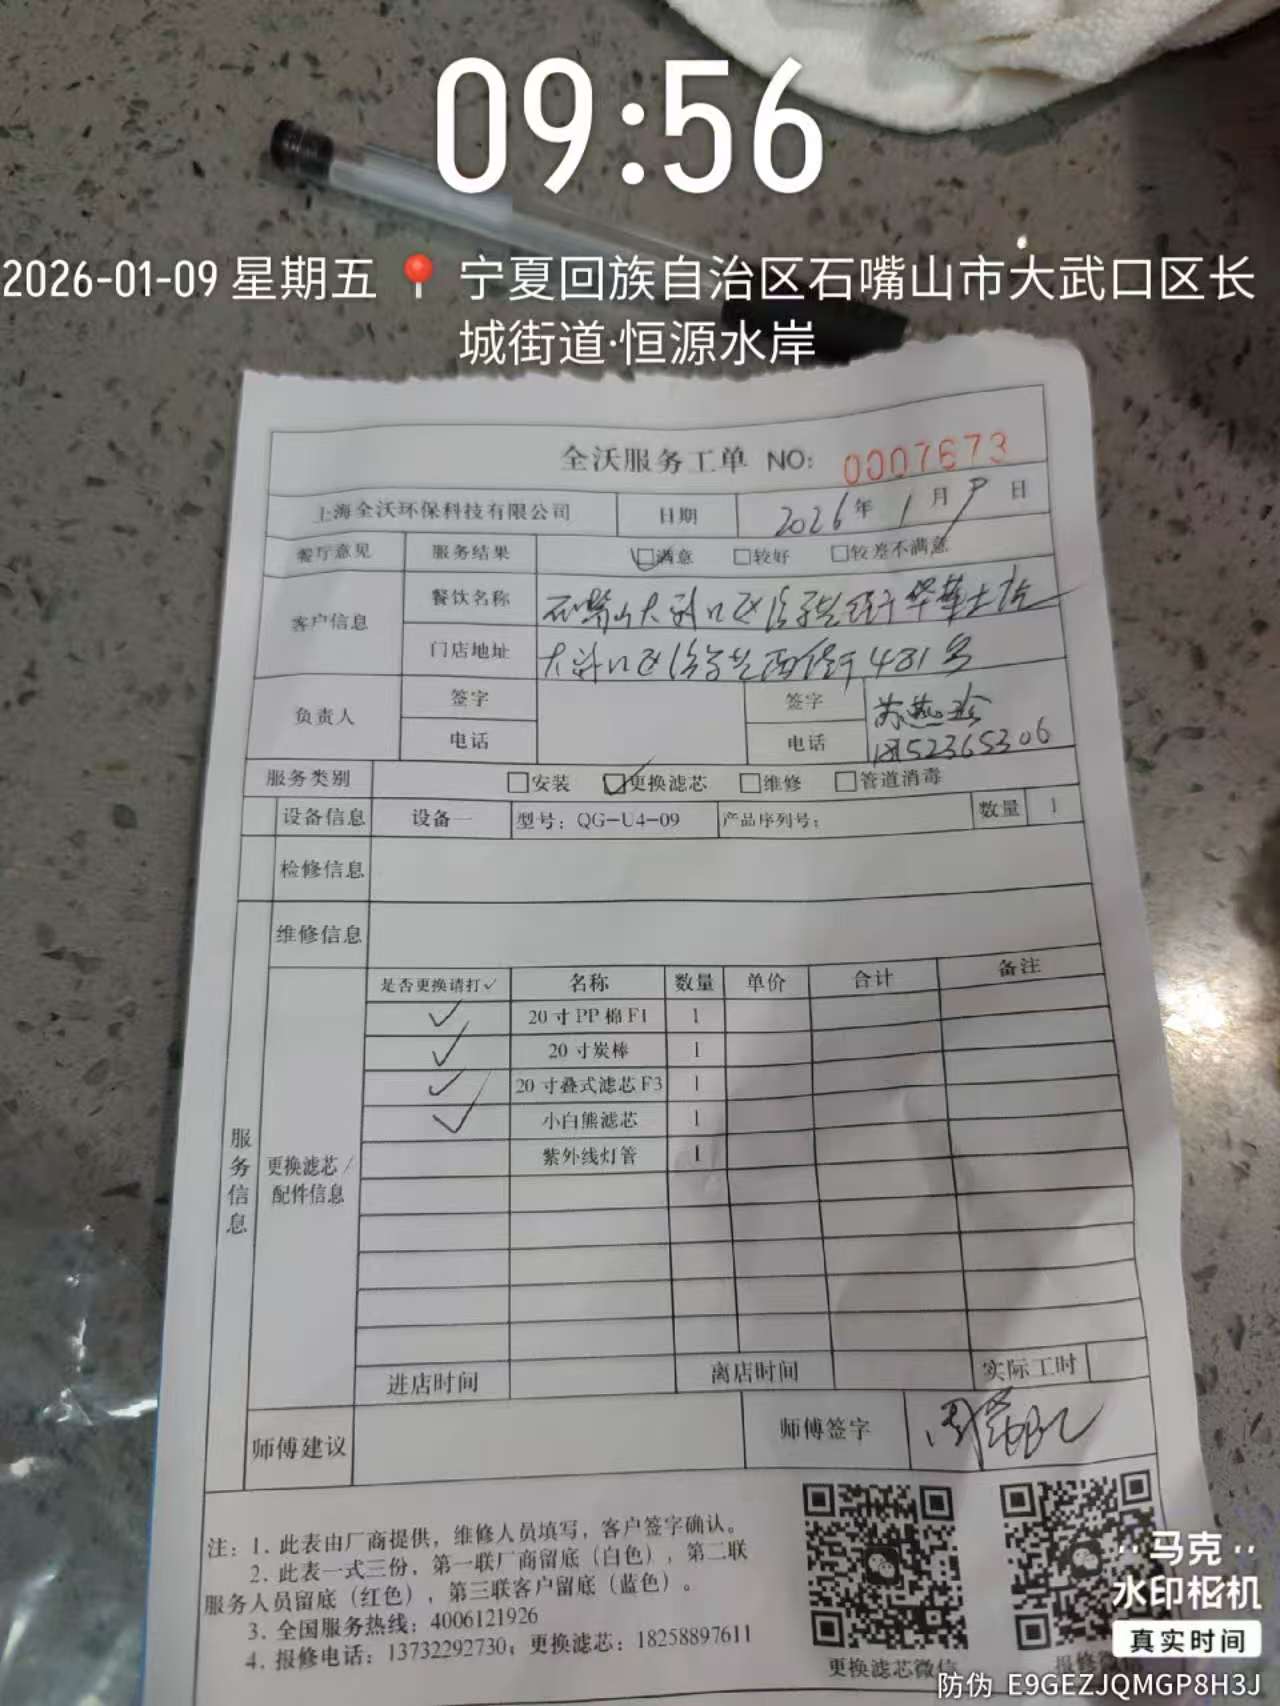 09:56
2026-01-09 星期五 📍 宁夏回族自治区石嘴山市大武口区长
城街道·恒源水岸
全沃服务工单 NO: 0007673
上海全沃环保科技有限公司 日期 2026年 1月 9日
餐厅意见 服务结果 ☑满意 □较好 □较差不满意
客户信息 餐饮名称 石嘴山大武口区
门店地址 大武口区 481号
负责人 签字 签字
电话 电话
服务类别 □安装 ☑更换滤芯 □维修 □管道消毒
设备信息 设备一 型号:QG-U4-09 产品序列号: 数量 1
检修信息
维修信息
服务信息
更换滤芯/
配件信息
是否更换请打✓ 名称 数量 单价 合计 备注
✓ 20寸PP棉F1 1
✓ 20寸炭棒 1
✓ 20寸叠式滤芯F3 1
✓ 小白熊滤芯 1
紫外线灯管 1
进店时间 离店时间 实际工时
师傅建议 师傅签字
注:1. 此表由厂商提供,维修人员填写,客户签字确认。
2. 此表一式三份,第一联厂商留底(白色),第二联
服务人员留底(红色),第三联客户留底(蓝色)。
3. 全国服务热线:4006121926
4. 报修电话:13732292730;更换滤芯:18258897611
更换滤芯微信 报修微信
马克
水印相机
真实时间
防伪 E9GEZJQMGP8H3J